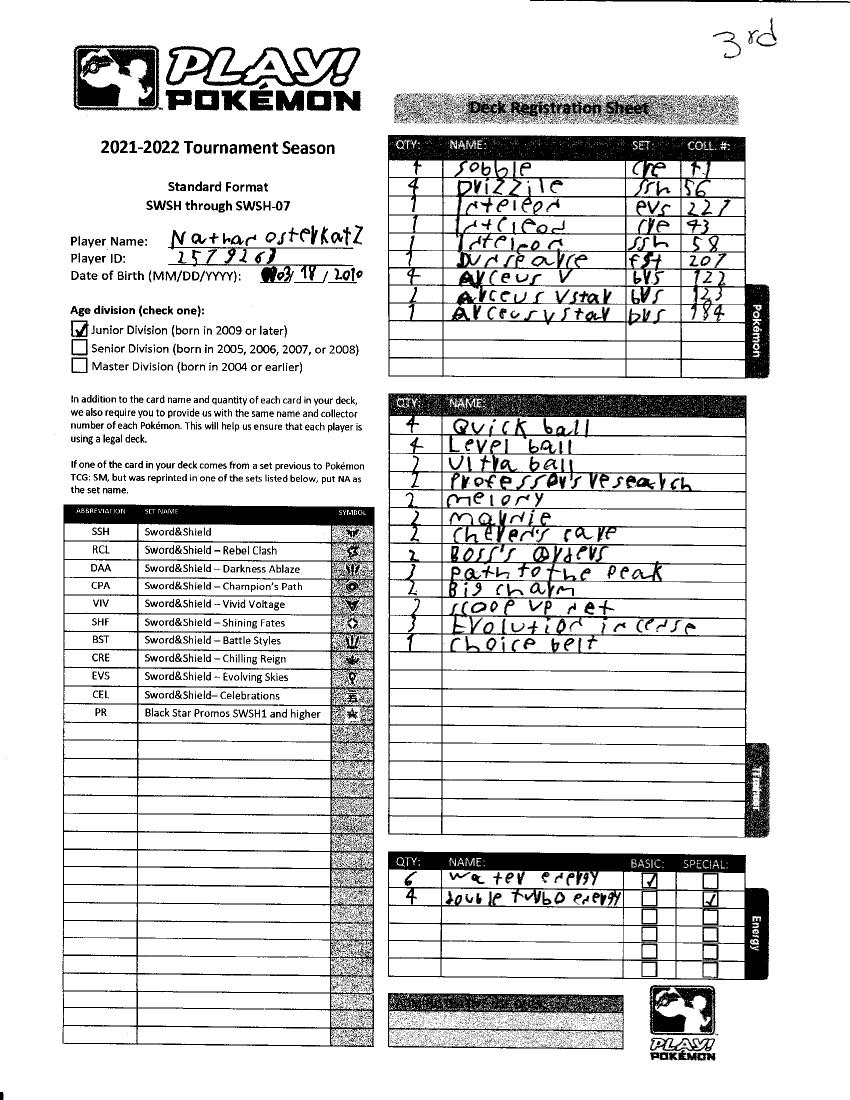 3rd
PLAY!
POKÉMON
Deck Registration Sheet
2021-2022 Tournament Season
Standard Format
SWSH through SWSH-07
Player Name: Nathan osterkatz
Player ID:
Date of Birth (MM/DD/YYYY): 03/18/2010
Age division (check one):
Junior Division (born in 2009 or later)
Senior Division (born in 2005, 2006, 2007, or 2008)
Master Division (born in 2004 or earlier)
In addition to the card name and quantity of each card in your deck,
we also require you to provide us with the same name and collector
number of each Pokémon. This will help us ensure that each player is
using a legal deck.
If one of the card in your deck comes from a set previous to Pokémon
TCG: SM, but was reprinted in one of the sets listed below, put NA as
the set name.
ABBREVIATION SET NAME SYMBOL
SSH Sword&Shield
RCL Sword&Shield – Rebel Clash
DAA Sword&Shield – Darkness Ablaze
CPA Sword&Shield – Champion's Path
VIV Sword&Shield – Vivid Voltage
SHF Sword&Shield – Shining Fates
BST Sword&Shield – Battle Styles
CRE Sword&Shield – Chilling Reign
EVS Sword&Shield – Evolving Skies
CEL Sword&Shield– Celebrations
PR Black Star Promos SWSH1 and higher
QTY: NAME: SET: COLL. #:
4 sobble cre 41
4 Drizzile ssh 56
1 Inteleon evs 227
1 Inteleon cre 43
1 Inteleon ssh 58
1 Dunsparce fst 207
4 Arceus V brs 122
2 Arceus Vstar brs 123
1 Arceus Vstar brs 184
Pokémon
QTY: NAME:
4 Quick ball
4 Level ball
2 Ultra ball
Professor's research
2 melony
2 marnie
2 cheren's care
2 Boss's orders
3 path to the peak
2 Big charm
2 scoop up net
3 Evolution incense
1 choice belt
Trainer
QTY: NAME: BASIC: SPECIAL:
6 water energy
4 double turbo energy
Energy
PLAY!
POKÉMON